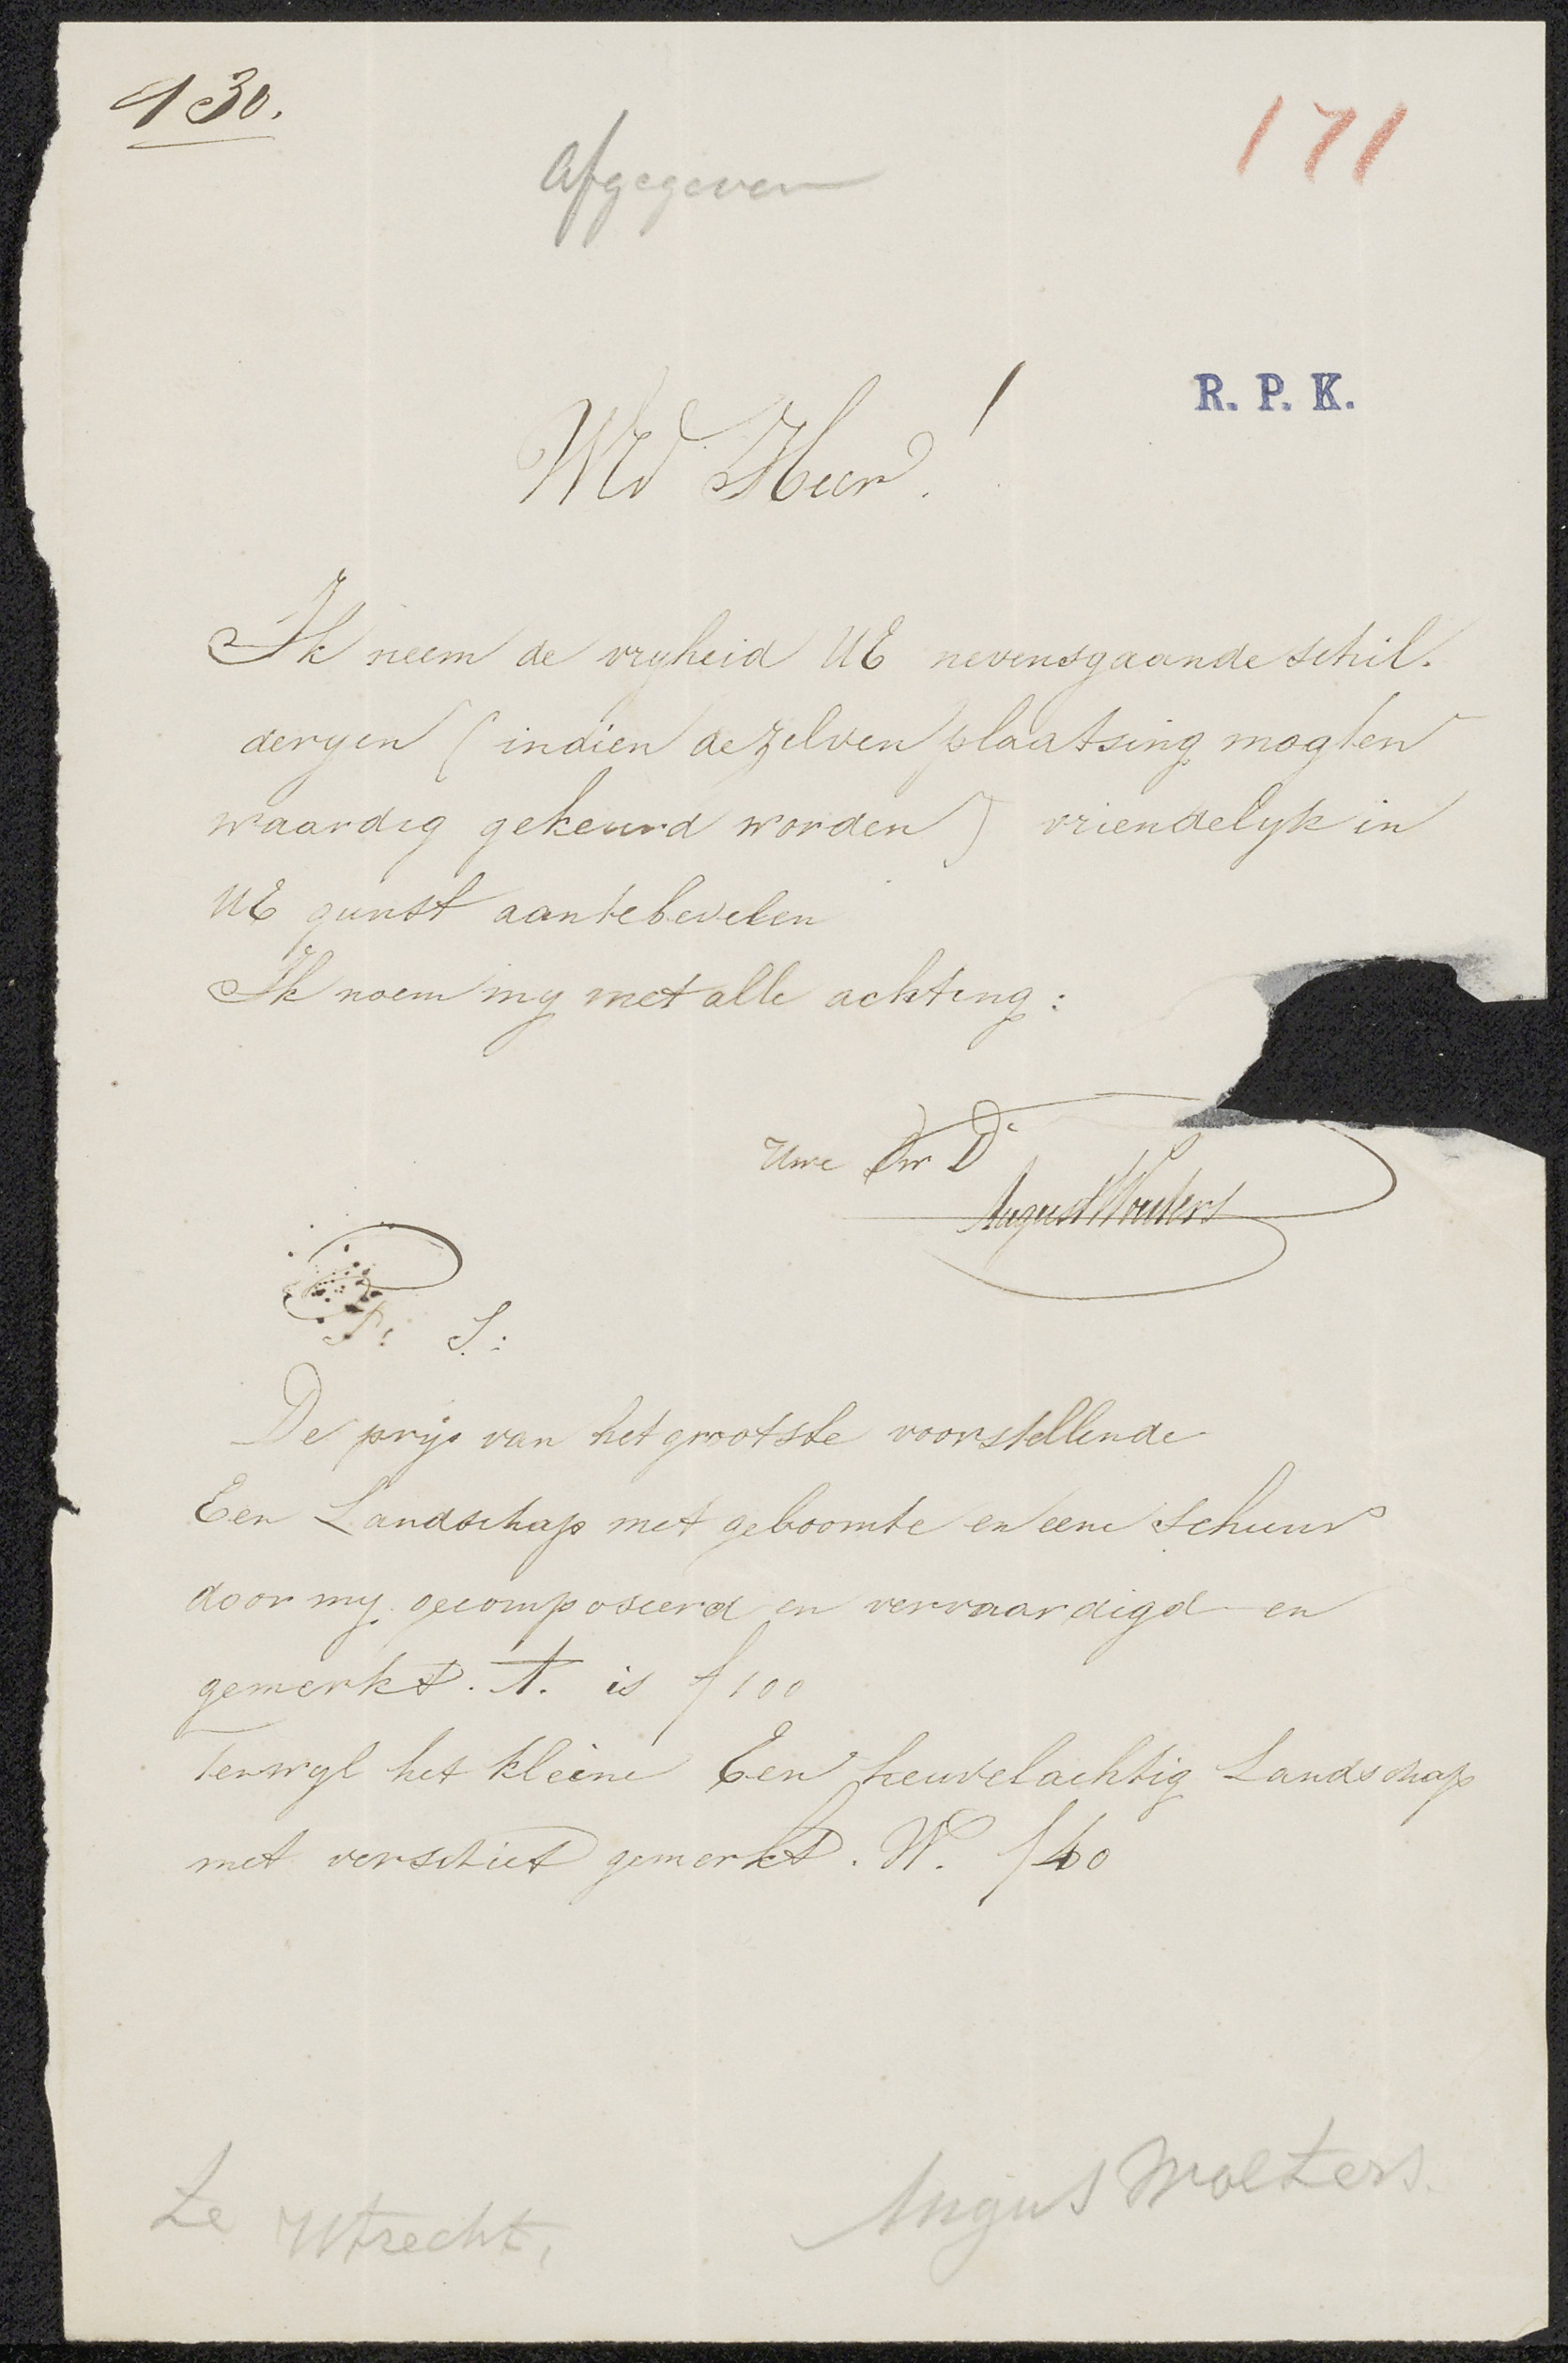 130.
171
afgegeven
R. P. K.
WEd Heer!
Ik neem de vryheid UE nevensgaande schil-
deryen (indien dezelven plaatsing mogten
waardig gekeurd worden) vriendelyk in
UE gunst aantebevelen
Ik noem my met alle achting:
Uwe Dw Dr
August Wouters
P: S:
De prys van het grootste voorstellende
Een Landschap met geboomte en eene schuur
door my gecomposeerd en vervaardigd en
gemerkt. A. is f 100
Terwyl het kleine Een heuvelachtig Landschap
met verschiet gemerkt. W. f 40
te Utrecht,
August Wolters.